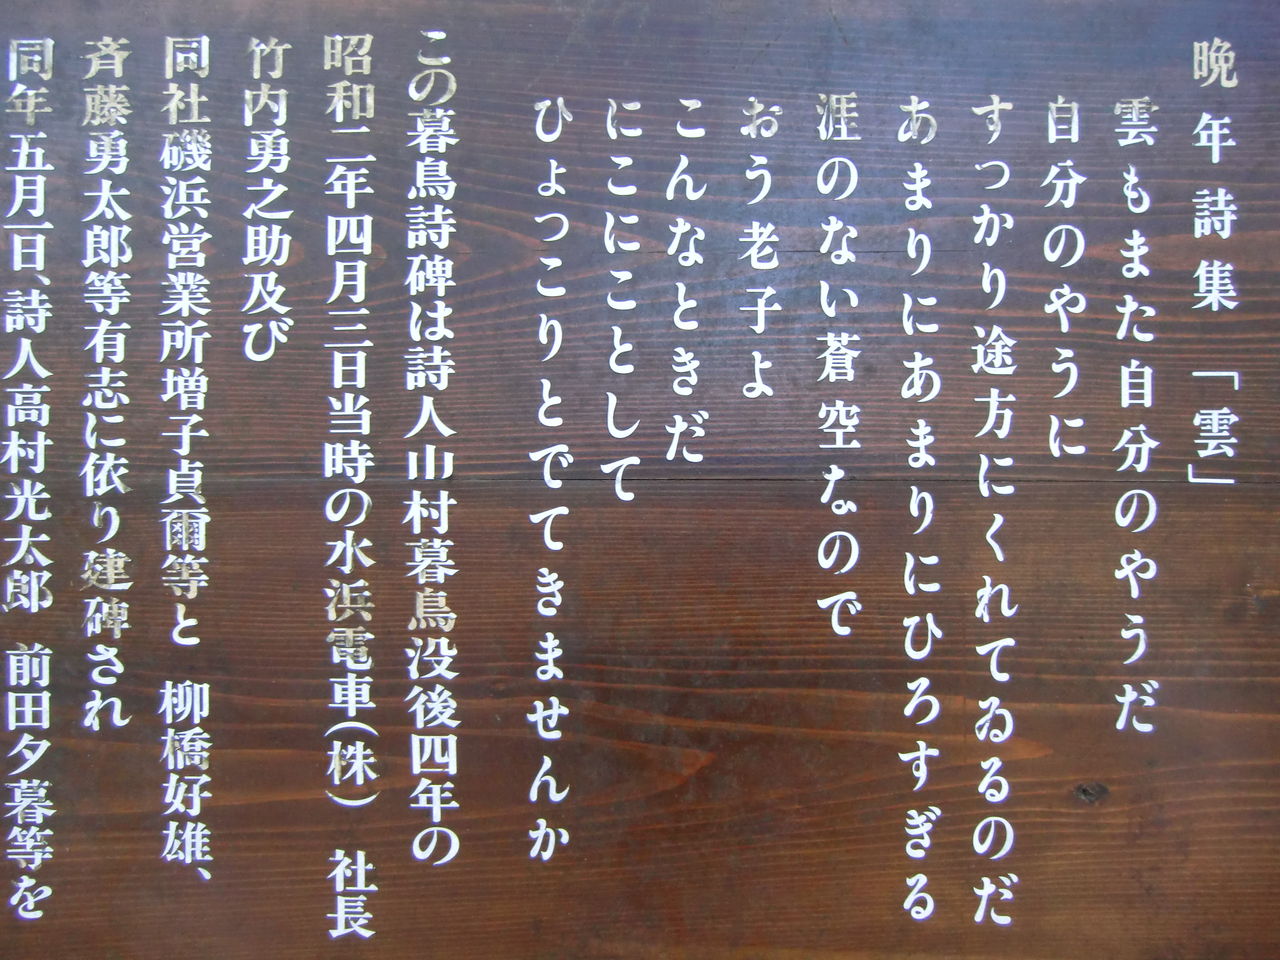 晩年詩集「雲」
雲もまた自分のやうだ
自分のやうに
すっかり途方にくれてゐるのだ
あまりにあまりにひろすぎる
涯のない蒼空なので
おう老子よ
こんなときだ
にこにことして
ひょっこりとでてきませんか
この暮鳥詩碑は詩人山村暮鳥没後四年の
昭和二年四月三日当時の水浜電車(株) 社長
竹内勇之助及び
同社磯浜営業所増子貞爾等と 柳橋好雄、
斉藤勇太郎等有志に依り建碑され
同年五月一日、詩人高村光太郎 前田夕暮等を